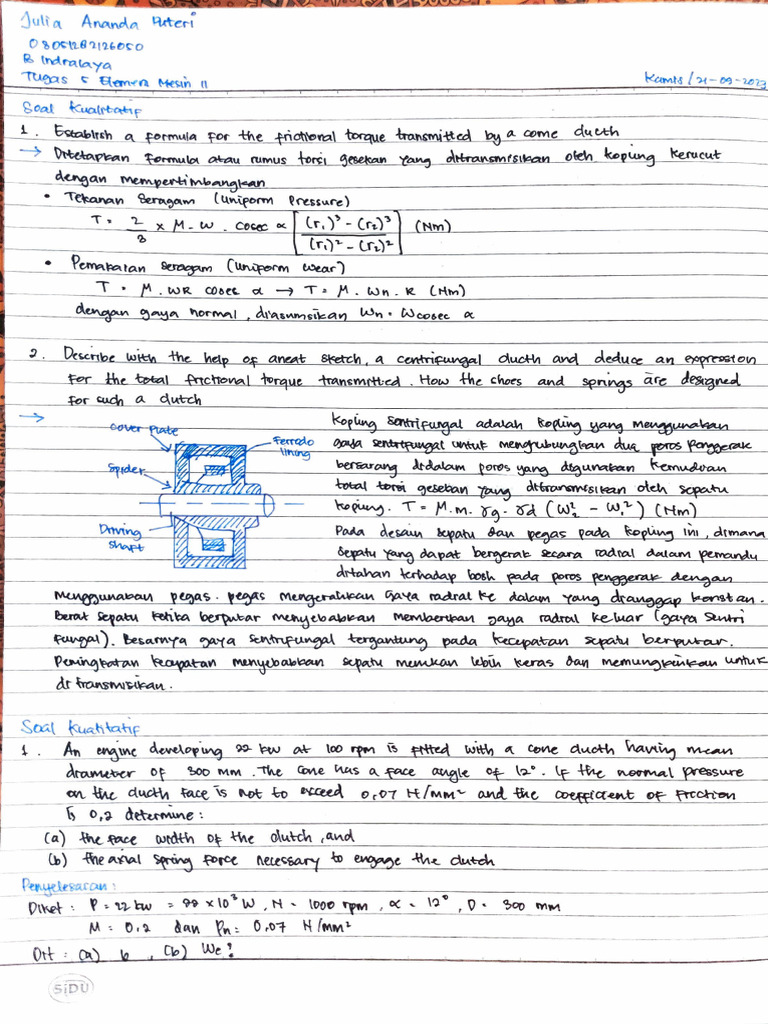 Julia Ananda Puteri
08051282126050
B Indralaya
Tugas 5 Elemen Mesin II
Kamis / 21-09-2023
Soal Kualitatif
1. Establish a formula for the frictional torque transmitted by a come clucth
→ Ditetapkan formula atau rumus torsi gesekan yang ditransmisikan oleh kopling kerucut
dengan mempertimbangkan
• Tekanan seragam (uniform Pressure)
T = 2/3 × μ . W . cosec α [(r₁)³ - (r₂)³ / (r₁)² - (r₂)²] (Nm)
• Pemakaian seragam (uniform wear)
T = μ . WR cosec α → T = μ . Wn . R (Nm)
dengan gaya normal, diasumsikan Wn = W cosec α
2. Describe with the help of aneat sketch, a centrifungal clucth and deduce an expression
for the total frictional torque transmitted. How the shoes and springs are designed
for such a clutch
→ Kopling sentrifungal adalah kopling yang menggunakan
gaya sentrifungal untuk menghubungkan dua poros penggerak
bersarang didalam poros yang digunakan kemudian
total torsi gesekan yang ditransmisikan oleh sepatu
kopling. T = μ . m . rg . rd (W₂² - W₁²) (Nm)
Pada desain sepatu dan pegas pada kopling ini, dimana
sepatu yang dapat bergerak secara radial dalam pemandu
ditahan terhadap bosh pada poros penggerak dengan
cover plate
Ferrodo
lining
Spider
Driving
shaft
menggunakan pegas. pegas mengerahkan gaya radial ke dalam yang dianggap konstan.
Berat sepatu ketika berputar menyebabkan memberikan gaya radial keluar (gaya sentri
fungal). Besarnya gaya sentrifungal tergantung pada kecepatan sepatu berputar.
Peningkatan kecepatan menyebabkan sepatu menekan lebih keras dan memungkinkan untuk
di transmisikan.
Soal Kuatitatif
1. An engine developing 22 kw at 100 rpm is fitted with a cone clucth having mean
diameter of 300 mm. The cone has a face angle of 12°. If the normal pressure
on the clucth face is not to exceed 0,07 N/mm² and the coefficient of friction
is 0,2 determine:
(a) the face width of the clutch, and
(b) the axial spring force necessary to engage the clutch
Penyelesaian:
Diket : P = 22 kw = 22 × 10³ W, N = 1000 rpm, α = 12°, D = 300 mm
μ = 0,2 dan Pn = 0,07 N/mm²
Dit : (a) b , (b) We?
SiDU